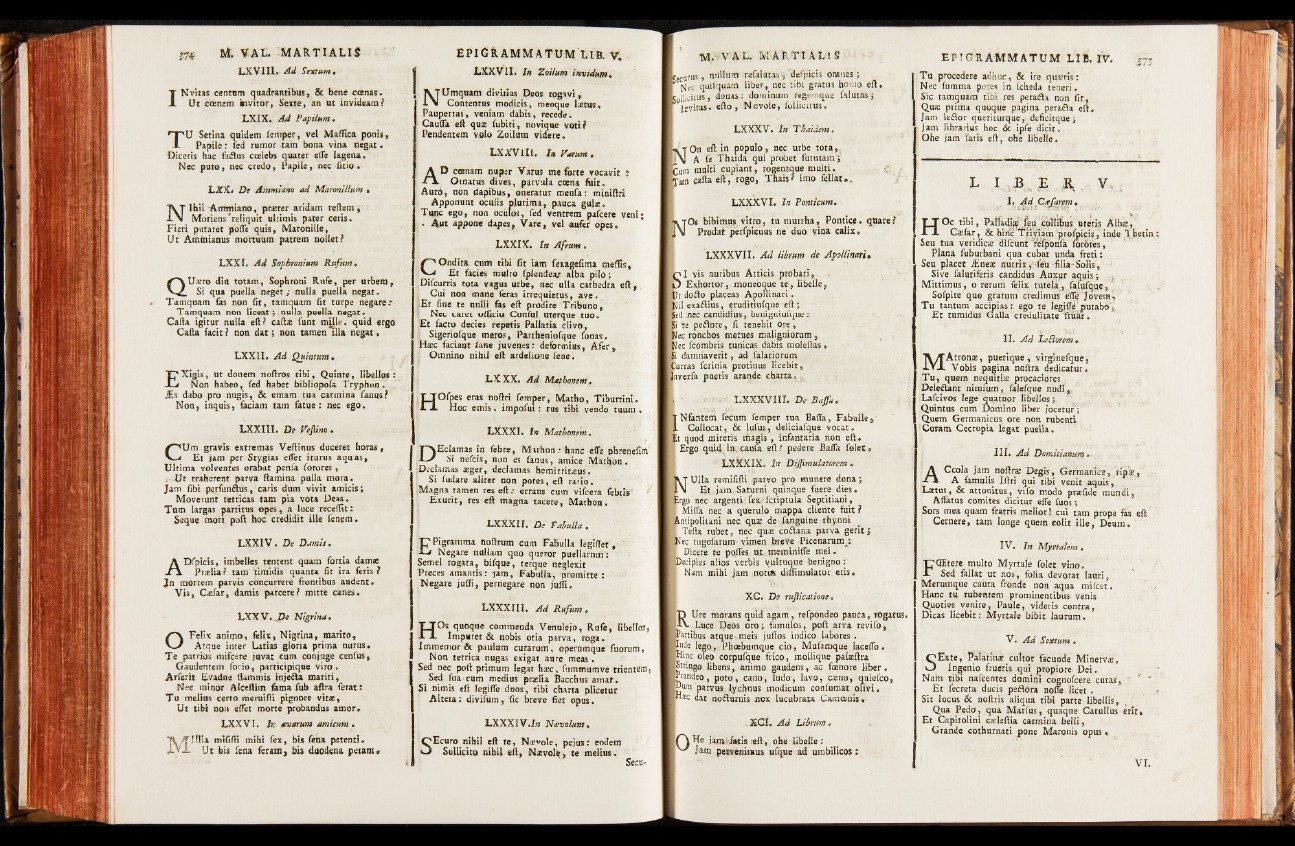 374 M. VAL. MARTIALIS
LXVIII. Ad Sextum.
INvitas centum quadrantibus, & bene cœnas.
Ut cœnem invitor, Sexte, an ut invideam?
LXIX. Ad Papilum.
TU Setina quidem semper, vel Massica ponis,
Papile: sed rumor tam bona vina negat.
Diceris hac factus cœlebs quater esse lagena.
Nec puto, nec credo, Papile, nec sitio.
LXX. De Ammiano ad Maronillum.
NIhil Ammiano, præter aridam restem,
Moriens reliquit ultimis pater ceris.
Fieri putaret posse quis, Maronille,
Ut Ammianus mortuum patrem nollet?
LXXI. Ad Sophronium Rufum.
QUæro diu totam, Sophroni Rufe, per urbem,
Si qua puella neget; nulla puella negat.
Tamquam fas non sit, tamquam sit turpe negare:
Tamquam non liceat; nulla puella negat.
Casta igitur nulla est? castæ sunt mille. quid ergo
Casta facit? non dat; non tamen illa negat.
LXXII. Ad Quintum.
EXigis, ut donem nostros tibi, Quinte, libellos:
Non habeo, sed habet bibliopola Tryphon.
Æs dabo pro nugis, & emam tua carmina sanus?
Non, inquis, faciam tam fatue: nec ego.
LXXIII. De Vestino.
CUm gravis extremas Vestinus duceret horas,
Et jam per Stygias esset iturus aquas,
Ultima volventes orabat pensa sorores,
Ut traherent parva stamina pulla mora.
Jam sibi perfunctus, caris dum vivit amicis;
Moverunt tetricas tam pia vota Deas.
Tum largas partitus opes, a luce recessit:
Seque mori post hoc credidit ille senem.
LXXIV. De Damis.
ADspicis, imbelles tentent quam fortia damæ
Prælia? tam timidis quanta sit ira feris?
In mortem parvis concurrere frontibus audent.
Vis, Cæsar, damis parcere? mitte canes.
LXXV. De Nigrina.
O Felix animo, felix, Nigrina, marito,
Atque inter Latias gloria prima nurus.
Te patrios miscere juvat cum conjuge census,
Gaudentem socio, participique viro.
Arserit Evadne flammis injecta mariti,
Nec minor Alcestim fama sub astra ferat:
Tu melius certo meruisti pignore vitæ,
Ut tibi non esset morte probandus amor.
LXXVI. In avarum amicum.
MIllia misisti mihi sex, bis sena petenti.
Ut bis sena feram, bis duodena petam.
EPIGRAMMATUM LIB. V.
LXXVII. In Zoilum invidum.
NUmquam divitias Deos rogavi,
Contentus modicis, meoque lætus.
Paupertas, veniam dabis, recede.
Caussa est quæ subiti, novique voti?
Pendentem volo Zoilum videre.
LXXVIII. In Varum.
AD cœnam nuper Varus me forte vocavit:
Ornatus dives, parvula cœna fuit.
Auro, non dapibus, oneratur mensa: ministri
Apponunt oculis plurima, pauca gulæ.
Tunc ego, non oculos, sed ventrem pascere veni:
Aut appone dapes, Vare, vel aufer opes.
LXXIX. In Afrum.
COndita cum tibi sit iam sexagesima messis,
Et facies multo splendeat alba pilo;
Discurris tota vagus urbe, nec ulla cathedra est,
Cui non mane feras irrequietus, ave.
Et sine te nulli fas est prodire Tribuno,
Nec caret officio Consul uterque tuo.
Et facto decies repetis Pallatia clivo,
Sigeriosque meros, Partheniosque sonas.
Hæc faciant sane juvenes: deformius, Afer,
Omnino nihil est ardelione sene.
LXXX. Ad Mathonem.
HOspes eras nostri semper, Matho, Tiburtini.
Hoc emis. imposui: rus tibi vendo tuum.
LXXXI. In Mathonem.
DEclamas in febre, Mathon: hanc esse phrenesim
Si nescis, non es sanus, amice Mathon.
Declamas æger, declamas hemitritæus.
Si sudare aliter non potes, est ratio.
Magna tamen res est: errans cum viscera febris
Exurit, res est magna tacere, Mathon.
LXXXII. De Fabulla.
EPigramma nostrum cum Fabulla legisset,
Negare nullam quo queror puellarum:
Semel rogata, bisque, terque neglexit
Preces amantis: jam, Fabulla, promitte:
Negare jussi, pernegare non jussi.
LXXXIII. Ad Rufum.
HOs quoque commenda Venulejo, Rufe, libellos,
Imputet & nobis otia parva, roga.
Immemor & paulum curarum, operumque suorum,
Non tetrica nugas exigat aure meas.
Sed nec post primum legat hæc, summumve trientem,
Sed sua cum medius prælia Bacchus amat.
Si nimis est legisse duos, tibi charta plicetur
Altera: divisum, sic breve fiet opus.
LXXXIV. In Nævolum.
SEcuro nihil est te, Nævole, pejus: eodem
Sollicito nihil est, Nævole, te melius.
Secu-
M. VAL. MARTIALIS
Securus, nullum resalutas; despicis omnes;
Nec quisquam liber, nec tibi gratus homo est.
Sollicitus, donas: dominum regemque salutas;
Invitas. esto, Nævole, sollicitus.
LXXXV. In Thaidem.
NOn est in populo, nec urbe tota,
A se Thaida qui probet fututam;
Cum multi cupiant, rogentque multi.
Tam casta est, rogo, Thais? imo fellat.
LXXXVI. In Ponticum.
NOs bibimus vitro, tu murrha, Pontice. quare?
Prodat perspicuus ne duo vina calix.
LXXXVII. Ad librum de Apollinari.
SI vis auribus Atticis probari,
Exhortor, moneoque te, libelle,
Ut docto placeas Apollinari.
Nil exactius, eruditiusque est;
Sed nec candidius, benigniusque:
Si te pectore, si tenebit ore,
Nec ronchos metues maligniorum,
Nec scombris tunicas dabis molestas,
Si damnaverit, ad salariorum
Curras scrinia protinus licebit,
Inversa pueris arande charta.
LXXXVIII. De Bassa.
INfantem secum semper tua Bassa, Fabulle,
Collocat, & lusus, deliciasque vocat.
Et quod mireris magis, infantaria non est.
Ergo quid in causa est? pedere Bassa solet.
LXXXIX. In Dissimulatorem.
NUlla remisisti parvo pro munere dona;
Et jam Saturni quinque fuere dies.
Ergo nec argenti sex scriptula Septitiani,
Missa nec a querulo mappa cliente fuit?
Antipolitani nec quæ de sanguine thynni
Testa rubet, nec quæ coctana parva gerit;
Nec rugosarum vimen breve Picenarum:
Dicere te posses ut meminisse mei.
Decipies alios verbis vultuque benigno:
Nam mihi jam notus dissimulator eris.
XC. De rusticatione.
RUre morans quid agam, respondeo pauca, rogatus.
Luce Deos oro; famulos, post arva reviso,
Partibus atque meis justos indico labores.
Inde lego, Phœbumque cio, Musamque lacesso.
Hinc oleo corpusque frico, mollique palæstra
Stringo libens, animo gaudens, ac fœnore liber.
Prandeo, poto, cano, ludo, lavo, cæno, quiesco,
Dum parvus lychnus modicum consumat olivi.
Hæc dat nocturnis nox lucubrata Camœnis.
XCI. Ad Librum.
OHe jam satis est, ohe libelle:
Jam pervenimus usque ad umbilicos:
EPIGRAMMATUM LIB. IV. 375
Tu procedere adhuc, & ire quæris:
Nec summa potes in scheda teneri.
Sic tamquam tibi res peracta non sit,
Quæ prima quoque pagina peracta est.
Jam lector queriturque, deficitque;
Jam librarius hoc & ipse dicit.
Ohe jam satis est, ohe libelle.
LIBER V.
I. Ad Cæsarem.
HOc tibi, Palladiæ seu collibus uteris Albæ,
Cæsar, & hinc Triviam prospicis, inde Thetin:
Seu tua veridicæ discunt responsa sorores,
Plana suburbani qua cubat unda freti:
Seu placet Æneæ nutrix, seu filia Solis,
Sive salutiferis candidus Anxur aquis;
Mittimus, o rerum felix tutela, salusque,
Sospite quo gratum credimus esse Jovem,
Tu tantum accipias: ego te legisse putabo,
Et tumidus Galla credulitate fruar.
II. Ad Lectorem.
MAtronæ, puerique, virginesque,
Vobis pagina nostra dedicatur.
Tu, quem nequitiæ procaciores
Delectant nimium, salesque nudi,
Lascivos lege quatuor libellos;
Quintus cum Domino liber jocetur;
Quem Germanicus ore non rubenti
Coram Cecropia legat puella.
III. Ad Domitianum.
ACcola jam nostræ Degis, Germanice, ripæ,
A famulis Istri qui tibi venit aquis,
Lætus, & attonitus, viso modo præside mundi,
Affatus comites dicitur esse suos;
Sors mea quam fratris melior! cui tam prope fas est
Cernere, tam longe quem colit ille, Deum.
IV. In Myrtalem.
FŒtere multo Myrtale solet vino.
Sed fallat ut nos, folia devorat lauri,
Merumque cauta fronde non aqua miscet.
Hanc tu rubentem prominentibus venis
Quoties venire, Paule, videris contra,
Dicas licebit: Myrtale bibit laurum.
V. Ad Sextum.
SExte, Palatinæ cultor facunde Minervæ,
Ingenio frueris qui propiore Dei.
Nam tibi nascentes domini cognoscere curas,
Et secreta ducis pectora nosse licet.
Sit locus & nostris aliqua tibi parte libellis,
Qua Pedo, qua Marsus, quaque Catullus erit,
Et Capitolini cælestia carmina belli,
Grande cothurnati pone Maronis opus.
VI.